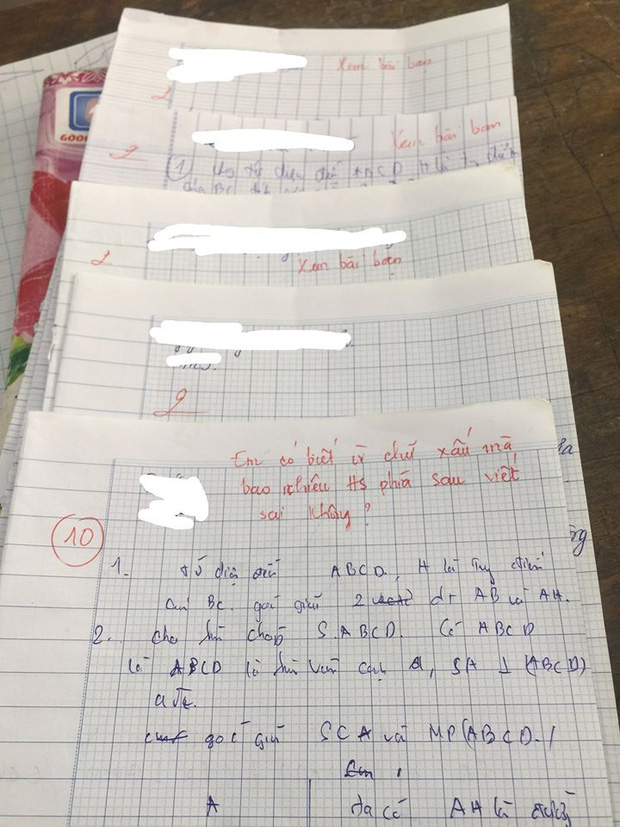 GOO
Xem bài bạn
2
Xem bài bạn
2
1 Cho tứ diện đều ABCD, H là
của BC
Xem bài bạn
2
2
Em có biết vì chữ xấu mà
bao nhiêu HS phía sau viết
sai không?
10
1. tứ diện đều ABCD, H là trung điểm
của BC. góc giữa 2 đt AB và AH.
2. cho hình chóp S.ABCD. Có ABCD
là ABCD là hình vuông cạnh a, SA ⊥ (ABCD)
góc giữa SCA và MP(ABCD.)
A
ta có AH là